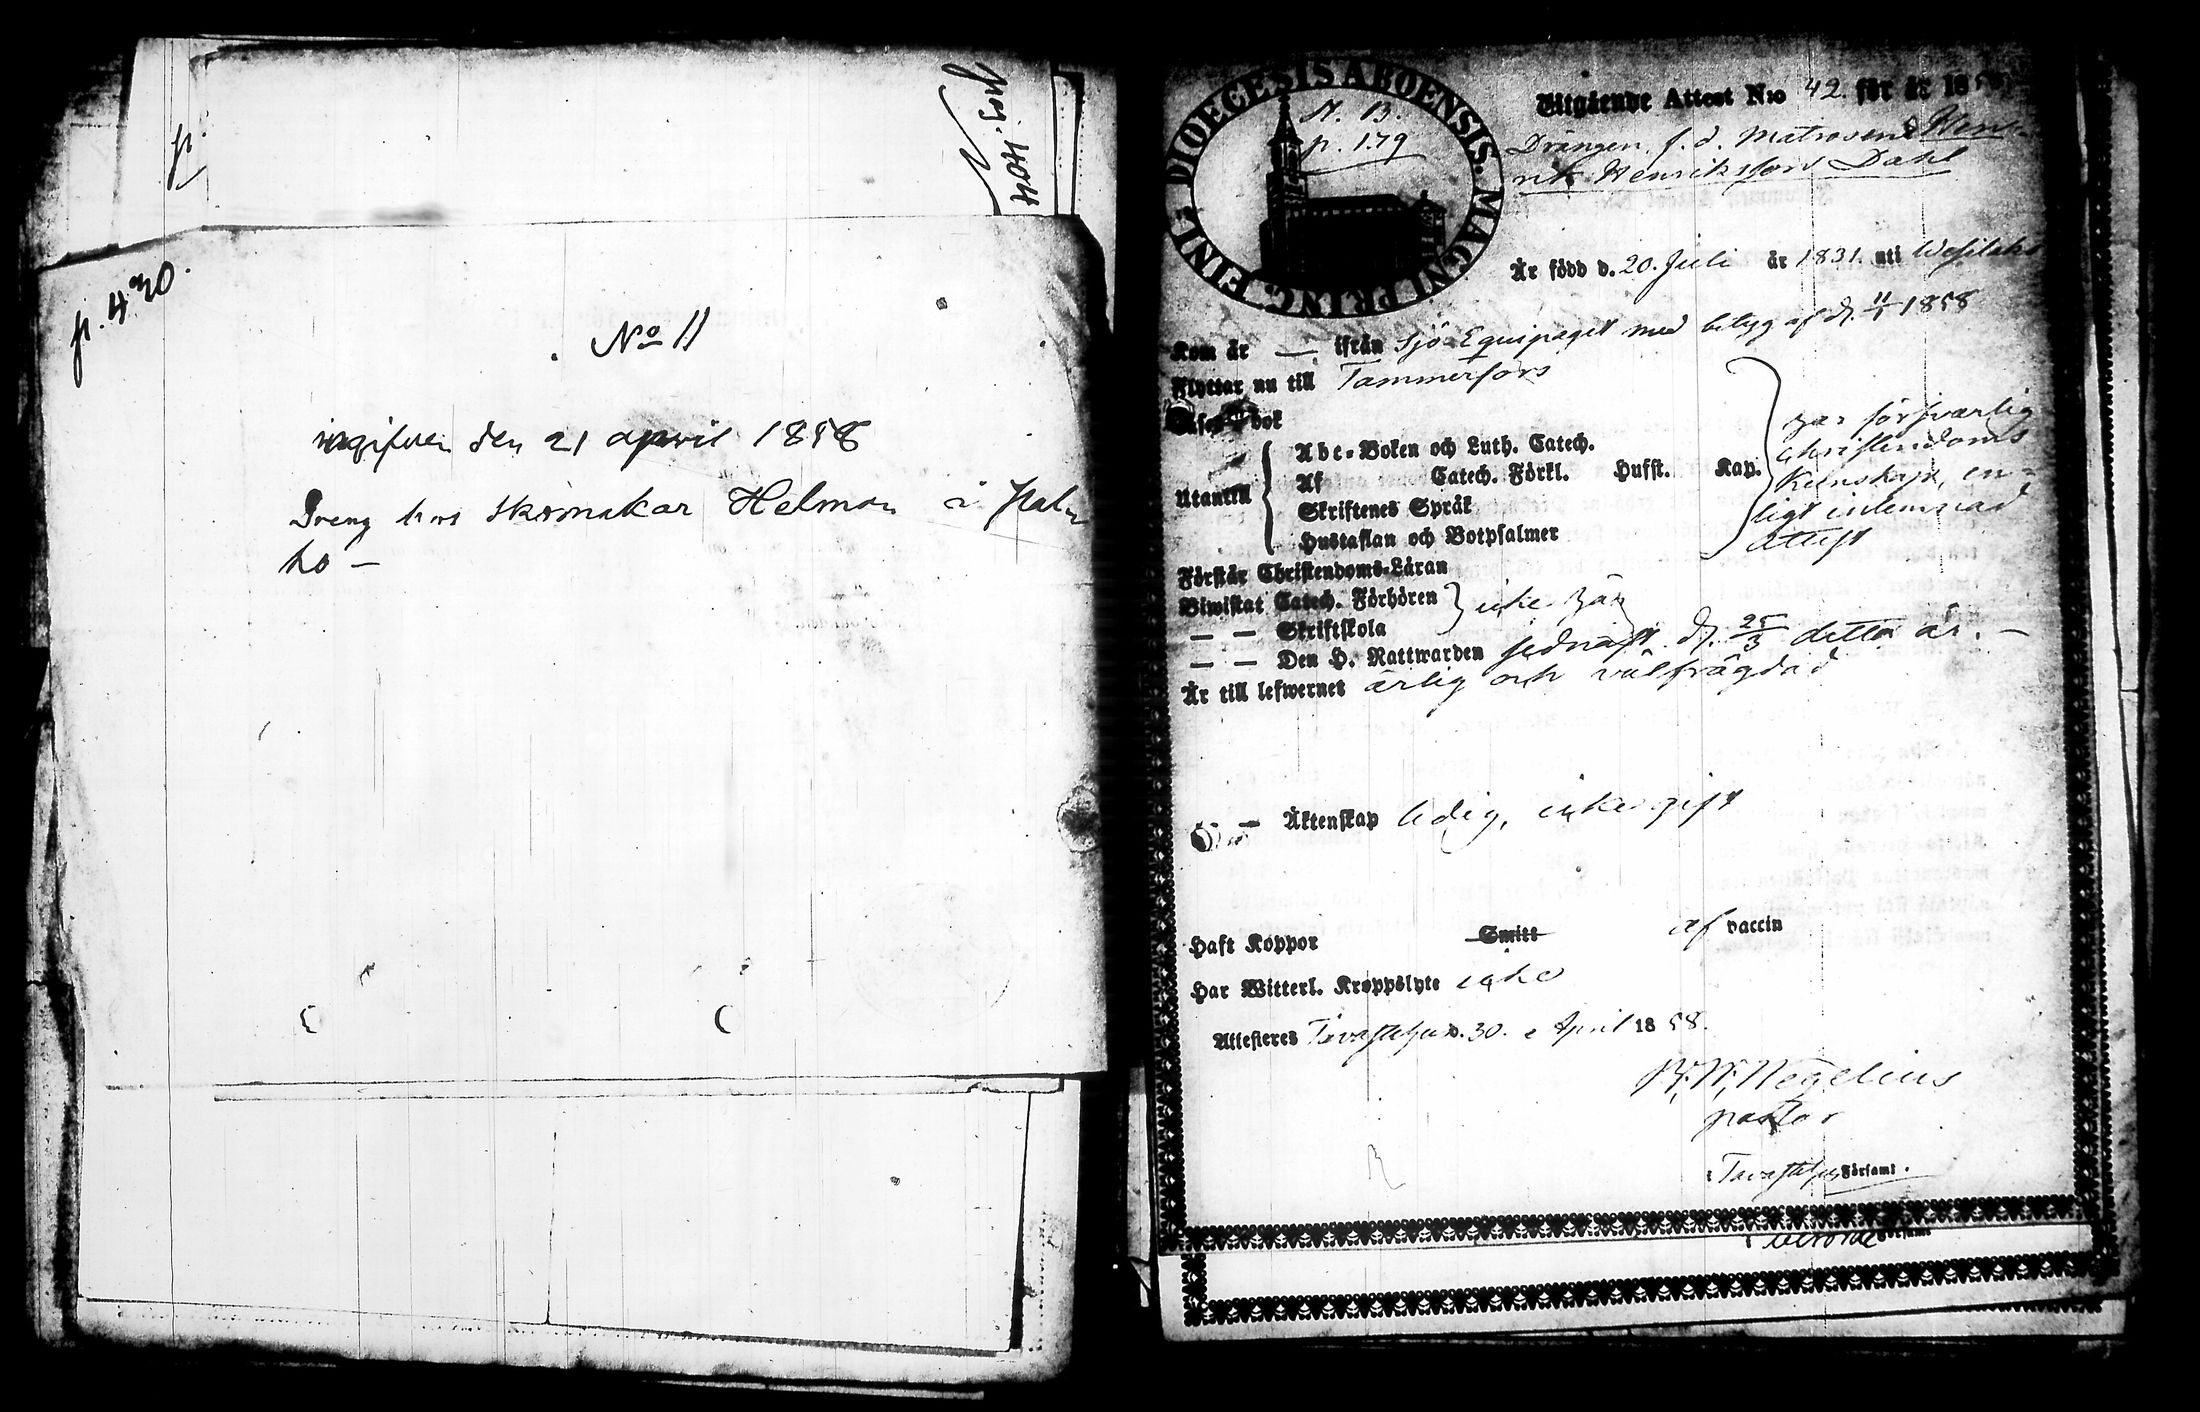 p.
Jnrg. 4044
p. 430.
No 11
ingifven den 21 april 1858
Dreng hos skomakar Helman i Hat
ho —
DIOECESIS ABOENSIS. MAGNI PRINC. FINL.
N. B.
p. 179
Utgående Attest N:o 42. för år 18
Drängen, f. d. Matrosen Hen-
rik Henriksson Dahl
Är född d. 20. Juli år 1831. uti Wesilaks
Kom år — ifrån Sjö-Equipaget med betyg af d. 11/1 1858
Flyttar nu till Tammerfors
bok
Utantill
Abc-Boken och Luth. Catech.
Af Catech. Förkl. Husst. Kap.
Skriftenes Språk
Hustaflan och Botpsalmer
har försvarlig
Christendoms
kunskap, en-
ligt inlemnad
attest
Förstår Christendoms-Läran
Biwistat Catech. Förhören
— — Skriftskola
icke här
— — Den H. Nattwarden sednast d. 25/3 detta år. —
Är till lefwernet ärlig och välfrägdad
— Äktenskap ledig, icke gift
Haft Koppor Smitt af vaccin
Har Witterl. Kroppslyte icke
Attesteras Tavastehus d. 30. April 1858.
Wegelius
pastor
i Tavastehus Församl.